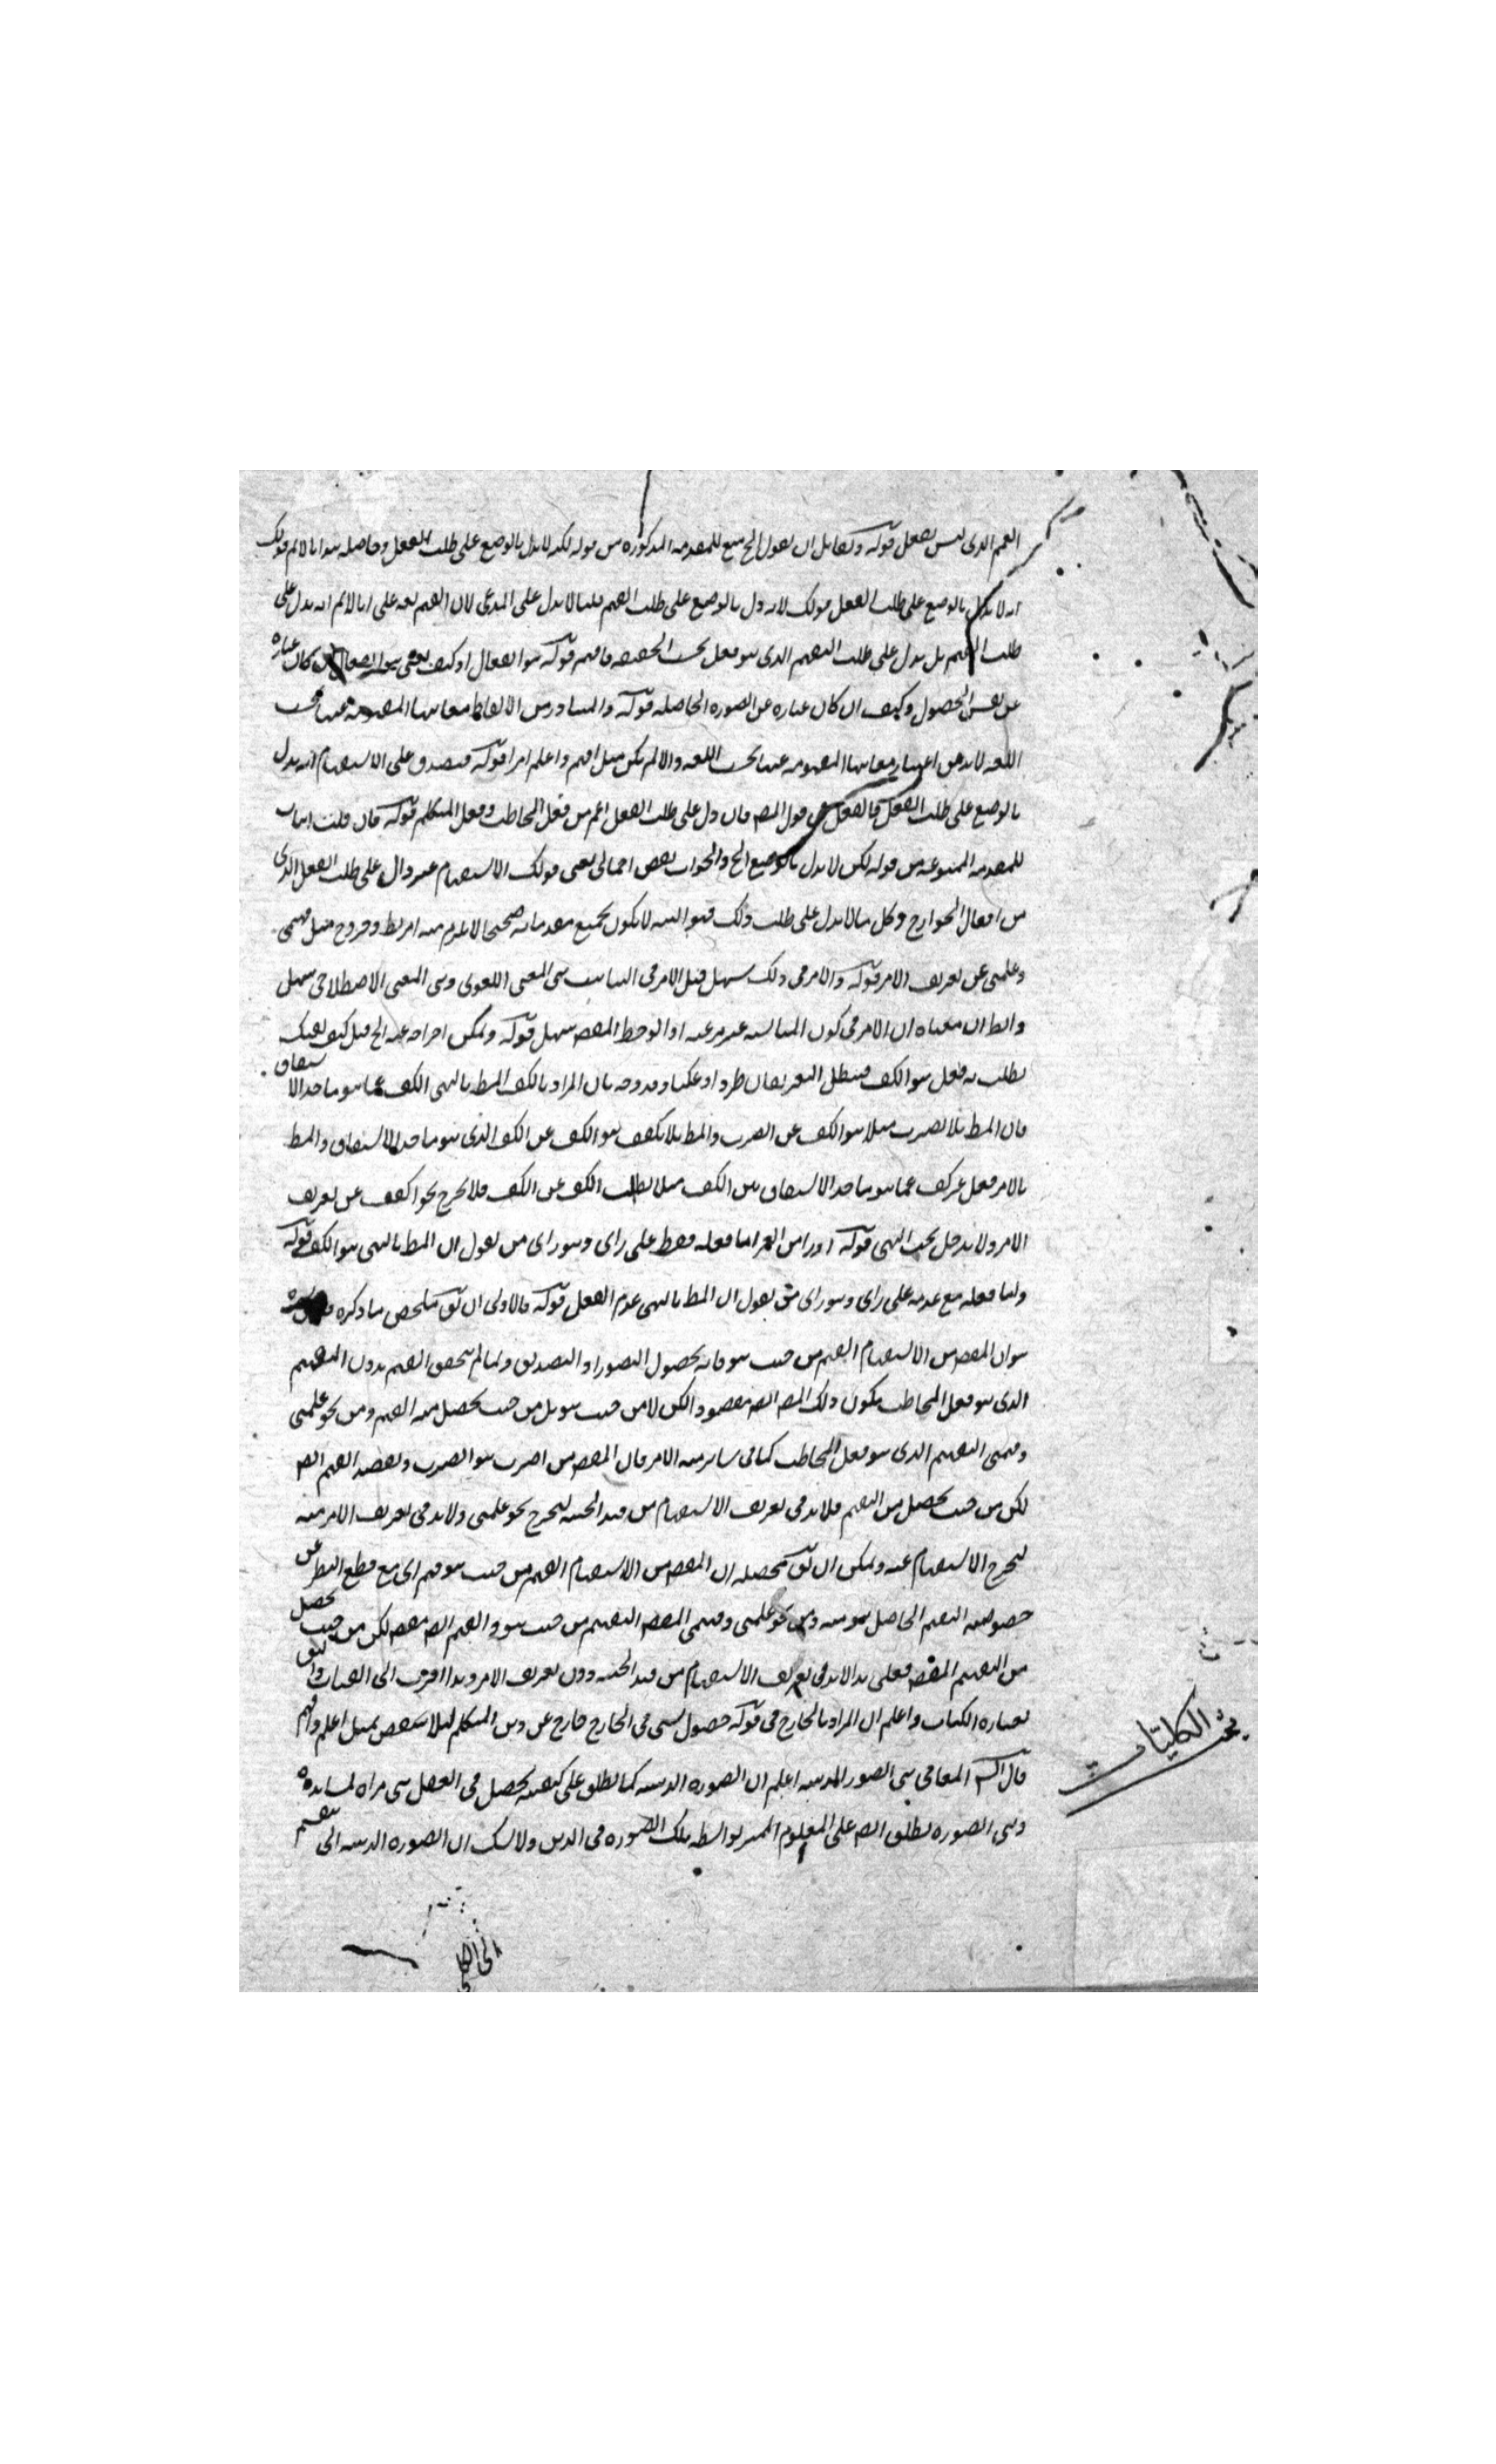 الفهم الذى ليس بفعل قوله ولقايل ان يقول الخ منع للمقدمه المذكوره من قوله لكنه لا يدل بالوضع على طلب الفعل وحاصله هو انا لانم قولك
انه لا يدل بالوضع على طلب الفعل قولك لانه دل بالوضع على طلب الفهم قلنا لا يدل على المدعى لان الفهم بعد على انا لانم انه يدل على
طلب الفهم بل يدل على طلب التفهيم الذى هو فعل بحسب الحقيقه فافهم قوله هو انفعال او كيف يعنى هو انفعال ان كان عباره
عن نفس الحصول وكيف ان كان عباره عن الصوره الحاصله قوله والمتبادر من الالفاظ معانيها المفهومه عنها بحسب
اللغه لا بد من اعتبار معانيها المفهومه عنها بحسب اللغه والا لم يكن مثل افهم واعلم امرا قوله فيصدق على الاستفهام انه يدل
بالوضع على طلب الفعل فالفعل فى قول المص فان دل على طلب الفعل اعم من فعل المخاطب وفعل المتكلم قوله فان قلت اثبات
للمقدمه الممنوعه من قوله لكن لا يدل بالوضع الخ والجواب نقض اجمالى يعنى قولك الاستفهام غير دال على طلب الفعل الذى
من افعال الجوارح وكل ما لا يدل على طلب ذلك فهو التنبيه لا يكون بجميع مقدماته صحيحا لا يلزم منه امر بط وخروج مثل فهمنى
وعلمنى عن تعريف الامر قوله والامر فى ذلك سهل قيل الامر فى المناسبه بين المعنى اللغوى وبين المعنى الاصطلاحى سهل
والظ ان معناه ان الامر فى كون المناسبه غير مرعيه اذا لوحظ المقص سهل قوله ويمكن اخراجه عنه الخ قيل كيف نفسك
يطلب به فعل هو الكف فيبطل التعريفان طردا وعكسا ودفعه بان المراد بالكف المط بالنهى الكف عما هو ماخذ الاشتقاق
فان المط بلا تضرب مثلا هو الكف عن الضرب والمط بلا تكفف هو الكف عن الكف الذى هو ماخذ الاشتقاق والمط
بالامر فعل غير كف عما هو ماخذ الاشتقاق من الكف مثلا يطلب الكف عن الكف فلا يخرج نحو اكفف عن تعريف
الامر ولا يدخل تحت النهى قوله فعله فقط على راى وهو راى من يقول ان المط بالنهى هو الكف قوله
واما فعله مع عدمه على راى وهو راى من يقول ان المط بالنهى عدم الفعل قوله فالاولى ان يق ملخص ما ذكره
هو ان المقص من الاستفهام الفهم من حيث هو فانه بحصول التصور او التصديق ولما لم يتحقق الفهم بدون التفهيم
الذى هو فعل المخاطب يكون ذلك ايض مقصودا لكن لا من حيث هو بل من حيث يحصل منه الفهم ومن نحو علمنى
وفهمنى التفهيم الذى هو فعل المخاطب كما فى سائر الامر فان المقص من اضرب هو الضرب ويقصد الفهم ايض
لكن من حيث يحصل من التفهيم فلا بد فى تعريف الاستفهام من قيد الحيثيه ليخرج نحو علمنى ولا بد فى تعريف الامر منه
ليخرج الاستفهام عنه ويمكن ان يق محصله ان المقص من الاستفهام الفهم من حيث هو فهم اى مع قطع النظر عن
خصوصيه التفهيم الحاصل هو منه ومن نحو علمنى وفهمنى المقص التفهيم من حيث هو والفهم ايض مقص لكن من حيث يحصل
من التفهيم المقص فعلى هذا لا بد فى تعريف الاستفهام من قيد الحيثيه دون تعريف الامر وهذا اقرب الى العبارات واليق
بعباره الكتاب واعلم ان المراد بالخارج فى قوله حصول شى فى الخارج خارج عن ذهن المتكلم ليلا ينتقض بمثل اعلم وافهم
قال الش المعانى هى الصور الذهنيه اعلم ان الصوره الذهنيه كما تطلق على كيفيه تحصل فى العقل هى مراه لمشاهده
وهى الصوره تطلق ايض على المعلوم المتميز بواسطه تلك الصوره فى الذهن ولا شك ان الصوره الذهنيه التى تنقسم
بحث الكليّات
الى الكلى